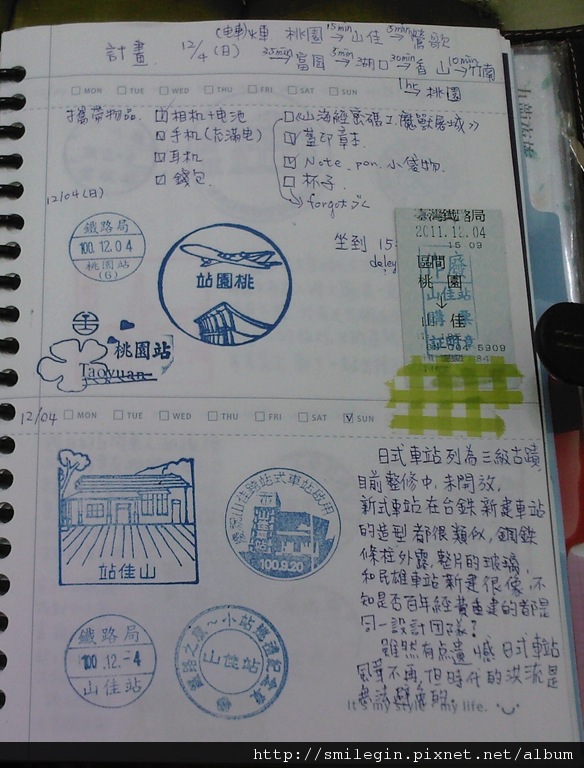 計畫 12/4(日)
火車 桃園 15min→ 山佳 5min→ 鶯歌
35min→ 富岡 5min→ 湖口 30min→ 香山 10min→ 竹南
1hr→ 桃園
MON TUE WED THU FRI SAT SUN
攜帶物品 相机+电池
手机(充滿电)
耳机
錢包
蓋印章本
Note. pen. 小錢物
杯子
forgot
12/04(日)
鐵路局
100.12.04
桃園站
(6)
站園桃
坐到 15
delay
臺灣鐵路局
2011.12.04
15 09
區間
桃園
↓
山佳
山佳站
購票
證明章
5909
桃園站
Taoyuan
12/04 MON TUE WED THU FRI SAT SUN
站佳山
100.9.20
鐵路局
100.12.-4
山佳站
山佳站
日式車站列為三級古蹟,
目前整修中,未開放,
新式車站在台鉄新建車站
的造型都很類似,鋼鉄
條柱外露,整片的玻璃,
和民雄車站新建很像,不
知是否百年經費重建的都是
同一設計團隊?
雖然有点遺憾日式車站
風華不再,但時代的洪流是
my life.
http://smilegin.pixnet.net/album